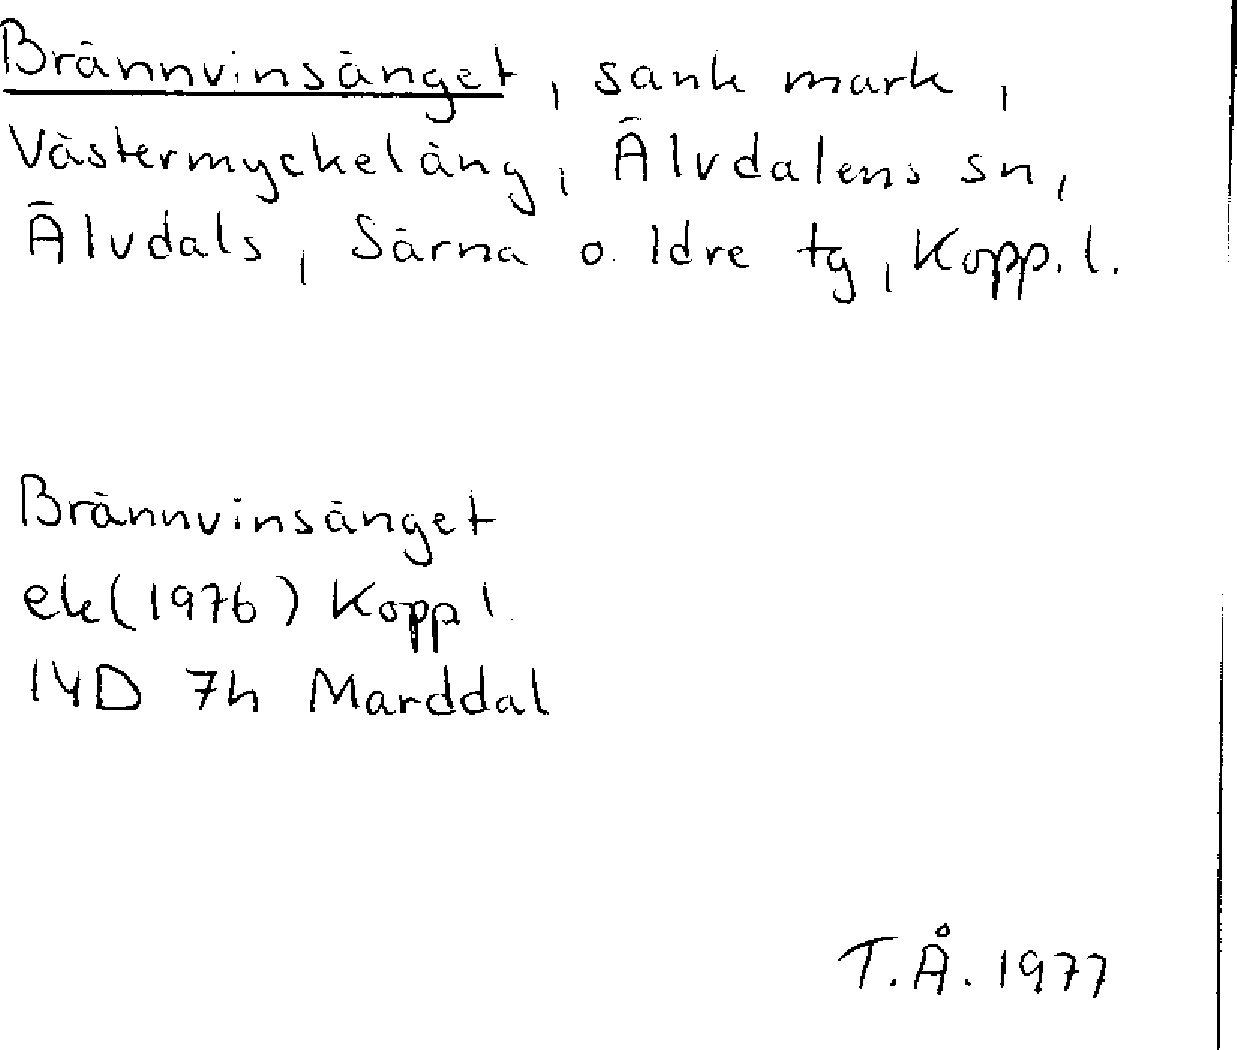 Brännvinsänget, sank mark,
Västermyckeläng, Älvdalens sn,
Älvdals, Särna o. Idre tg, Kopp. l.
Brännvinsänget
ek (1976) Kopp l
14D 7h Marddal
T.Å. 1977